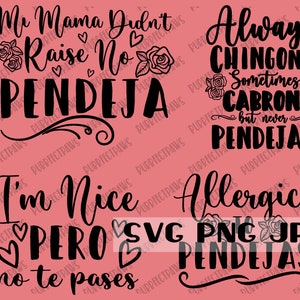 Mi Mama Didnt
Raise No
PENDEJA
Always
CHINGON
Sometimes
CABRON
but never
PENDEJA
I'm Nice
PERO
no te pases
Allergic
TO
PENDEJAS
SVG PNG JP